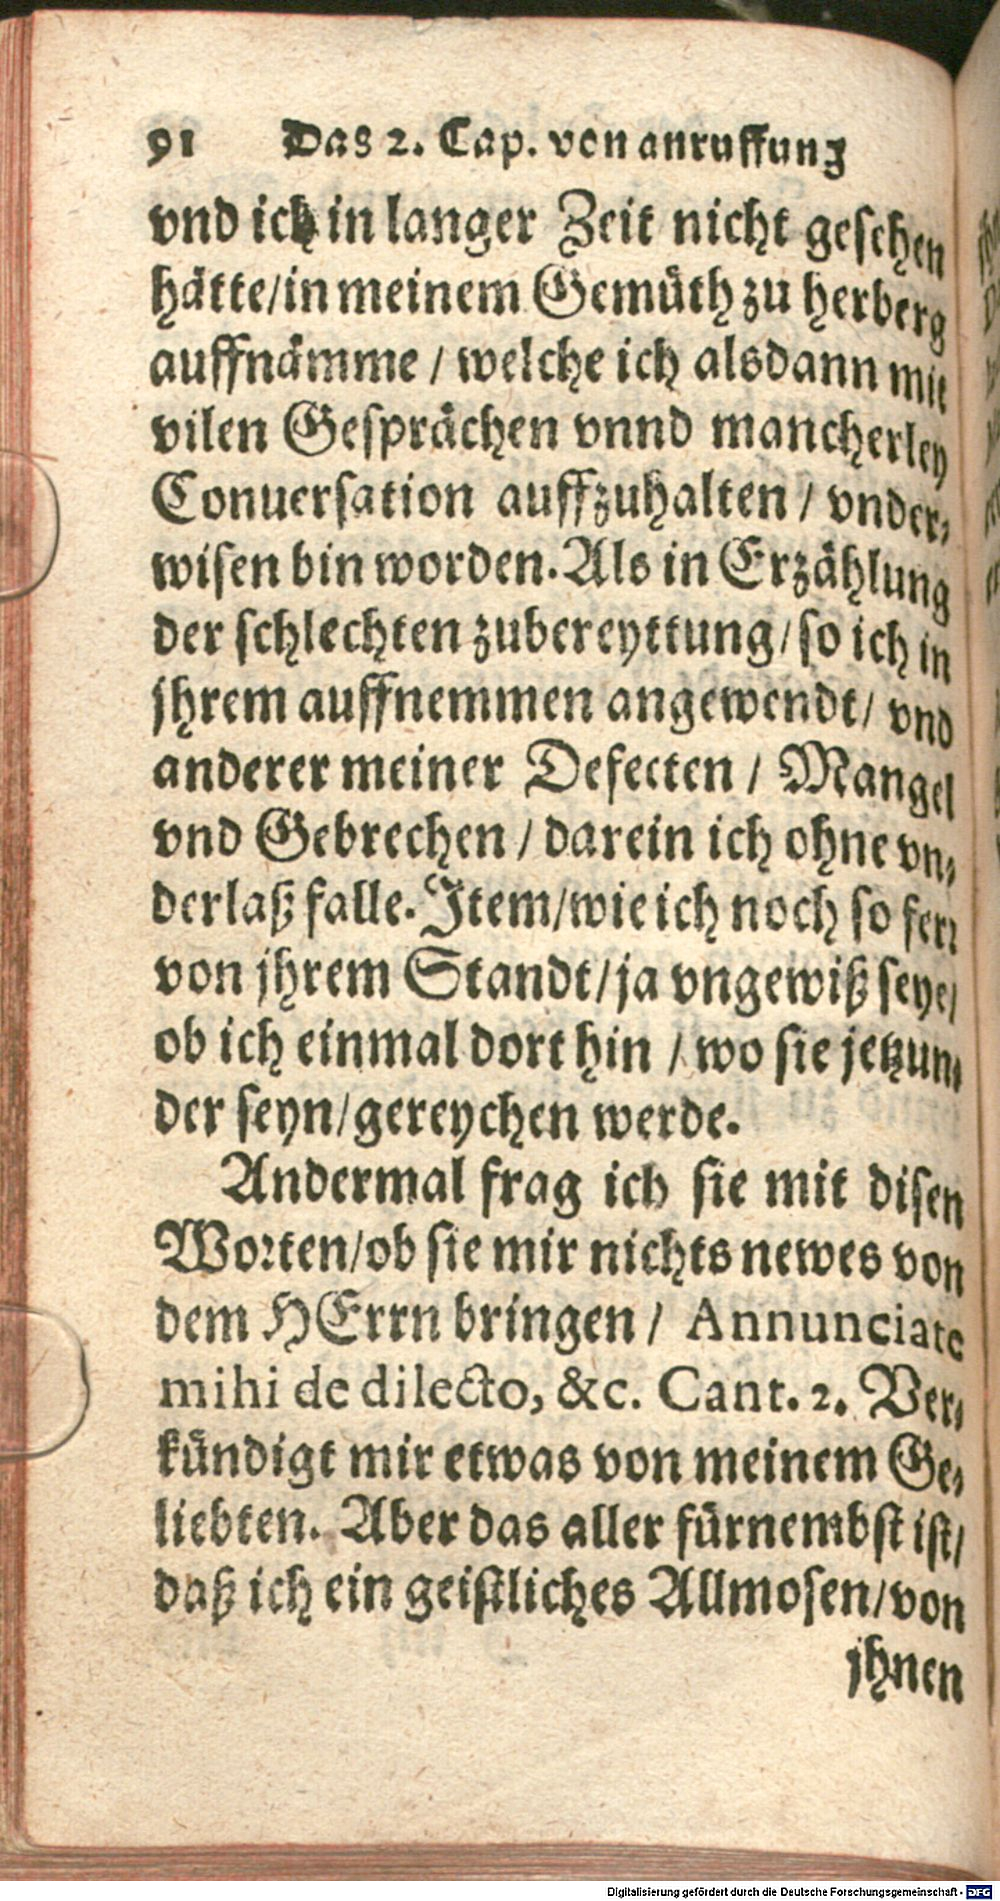 91 Das 2. Cap. von anruffung
vnd ich in langer Zeit nicht gesehen
hätte/in meinem Gemüth zu herberg
auffnämme / welche ich alsdann mit
vilen Gesprächen vnnd mancherley
Conuersation auffzuhalten / vnder-
wisen bin worden. Als in Erzählung
der schlechten zubereyttung/ so ich in
jhrem auffnemmen angewendt/ vnd
anderer meiner Defecten / Mangel
vnd Gebrechen / darein ich ohne vn-
derlaß falle. Item/wie ich noch so ferr
von jhrem Standt/ja vngewiß seye/
ob ich einmal dort hin / wo sie jetzun-
der seyn/gereychen werde.
Andermal frag ich sie mit disen
Worten/ob sie mir nichts newes von
dem HErrn bringen / Annunciate
mihi de dilecto, &c. Cant. 2. Ver-
kündigt mir etwas von meinem Ge-
liebten. Aber das aller fürnembst ist/
daß ich ein geistliches Allmosen/von
jhnen
Digitalisierung gefördert durch die Deutsche Forschungsgemeinschaft - DFG